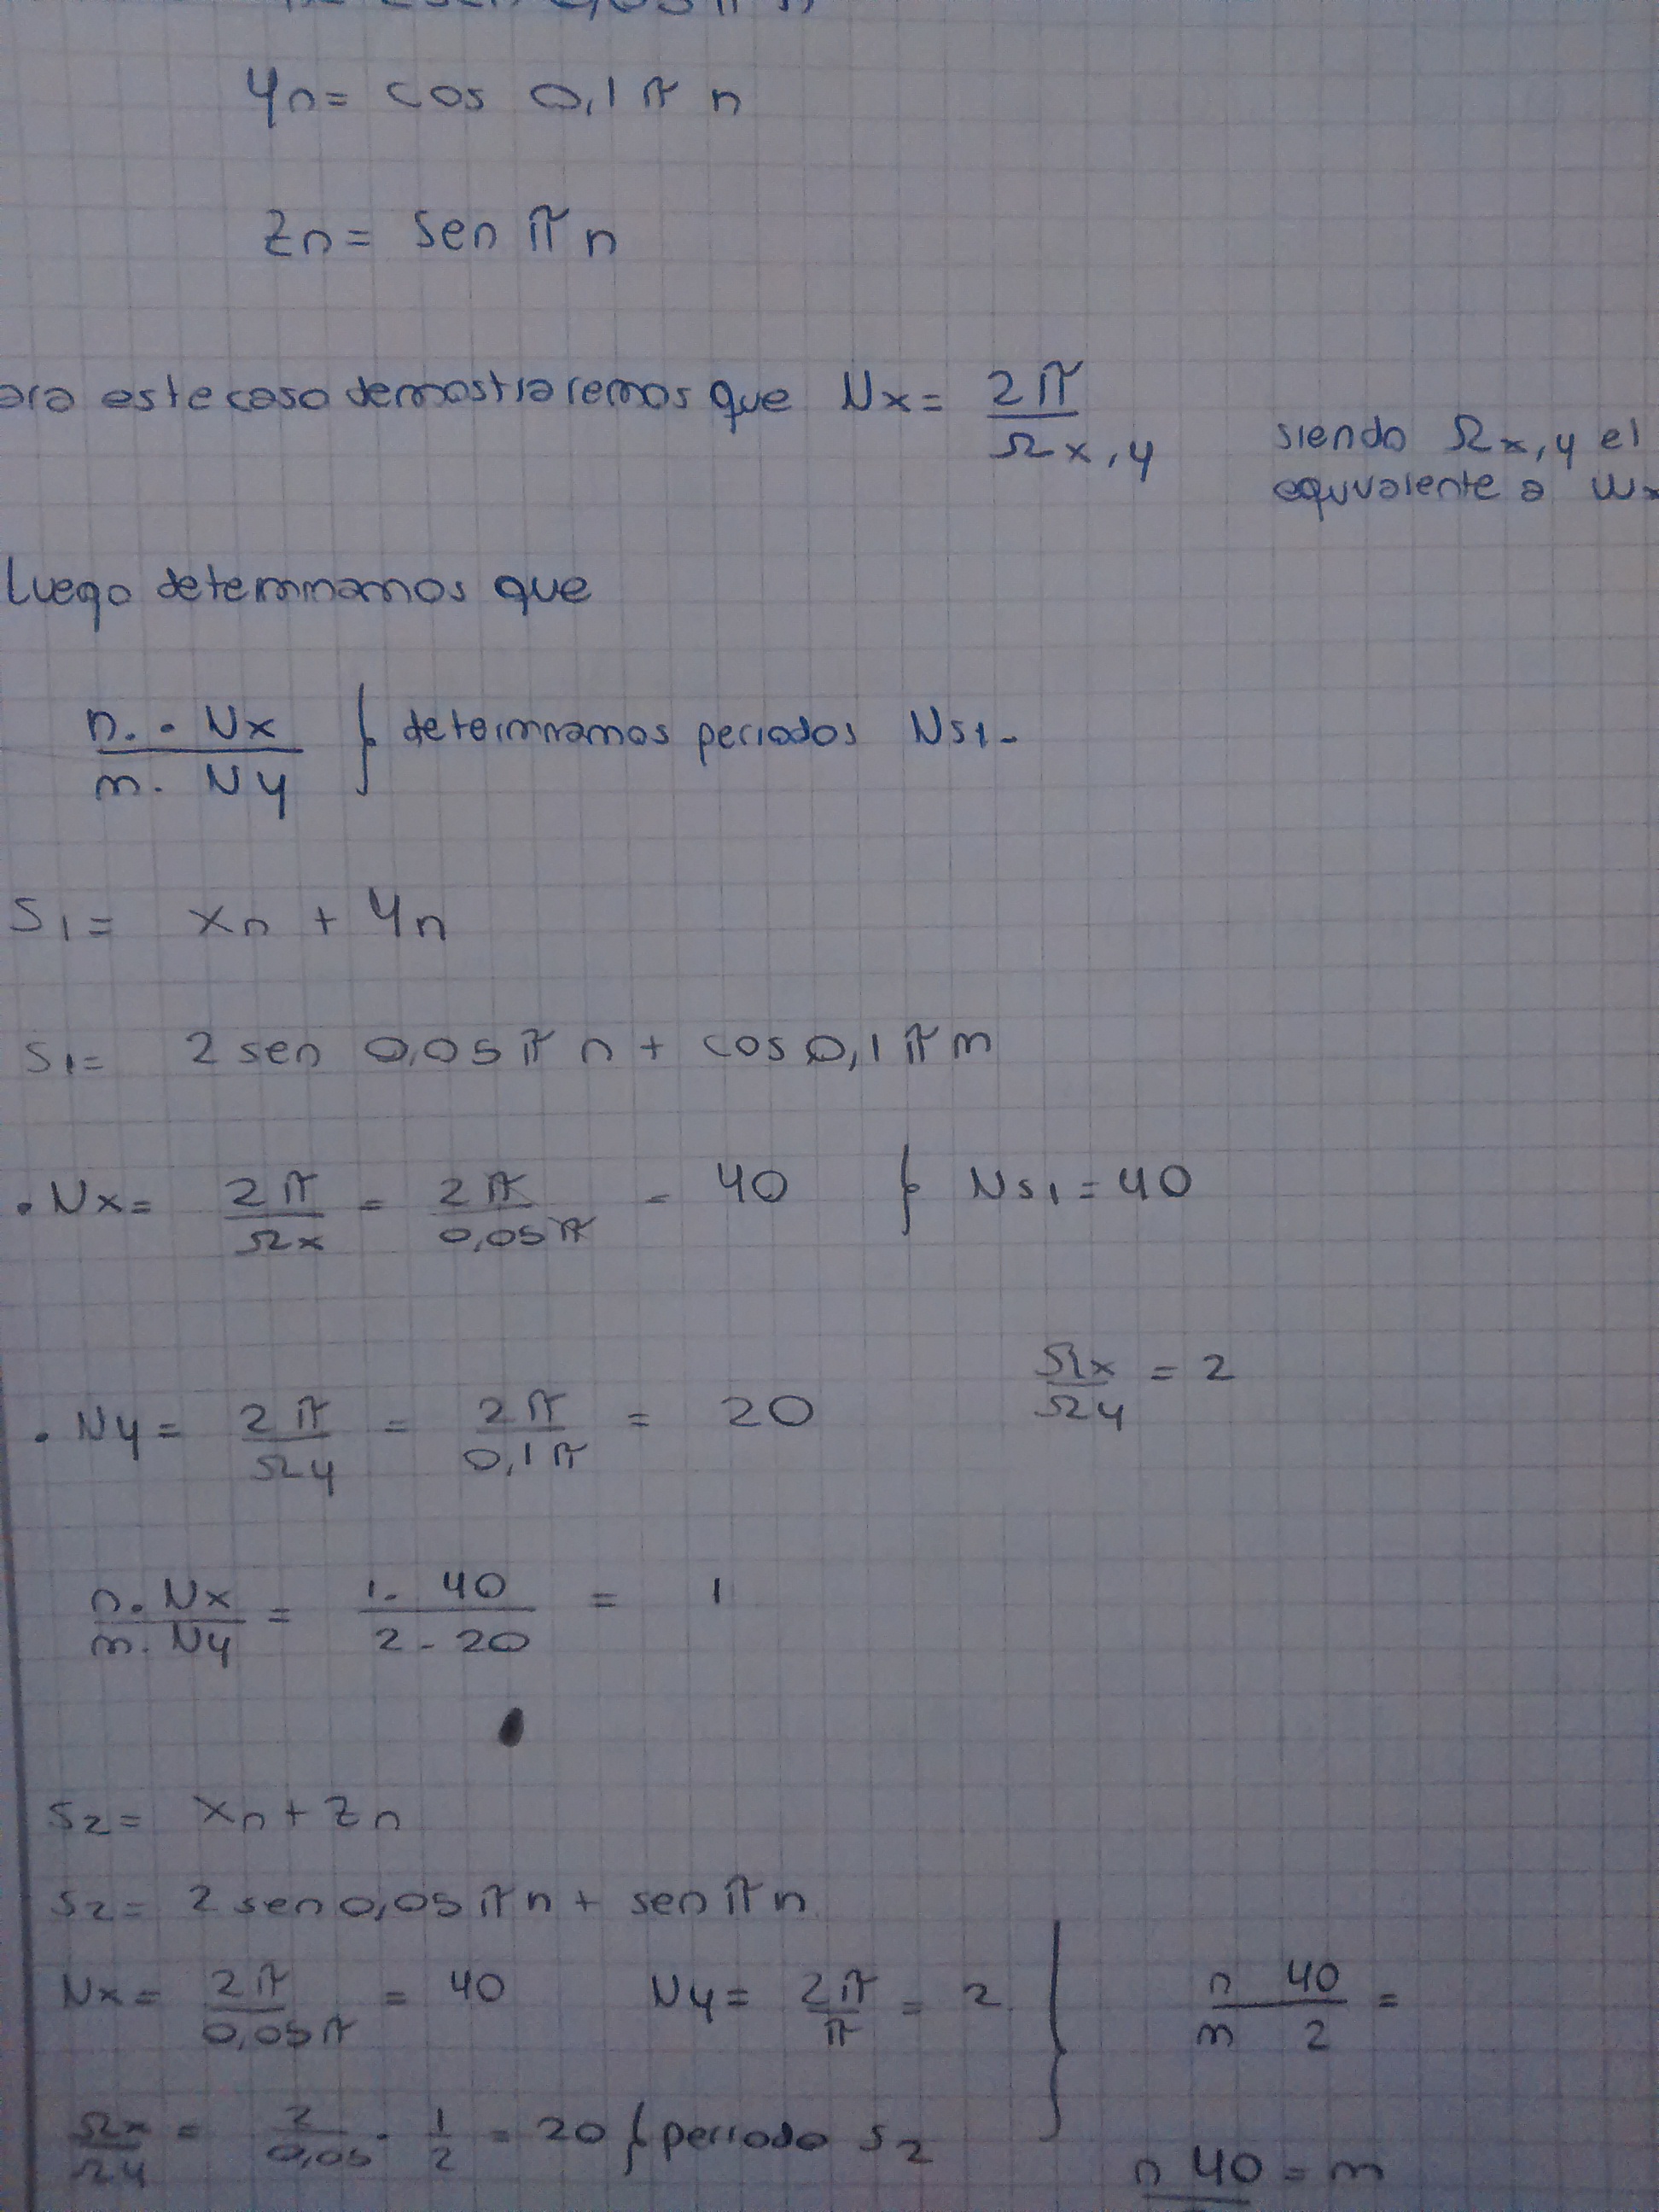 yn= cos 0,1π n
zn= sen π n
ara este caso demostraremos que Nx= 2π / Ωx,y siendo Ωx,y el
equivalente a wx
Luego determinamos que
n. . Nx / m. Ny } determinamos periodos Ns1-
S1= xn + yn
S1= 2 sen 0,05 π n + cos 0,1 π m
. Nx= 2π / Ωx = 2π / 0,05π = 40 } Ns1 = 40
. Ny = 2π / Ωy = 2π / 0,1π = 20 Ωx / Ωy = 2
n. Nx / m. Ny = 1. 40 / 2 - 20 = 1
S2= xn + zn
S2= 2 sen 0,05 π n + sen π n
Nx= 2π / 0,05π = 40 Ny= 2π / π = 2 } n 40 / m 2 =
Ωx / Ωy = 2 / 0,05 . 1 / 2 = 20 { periodo s2
n 40 = m